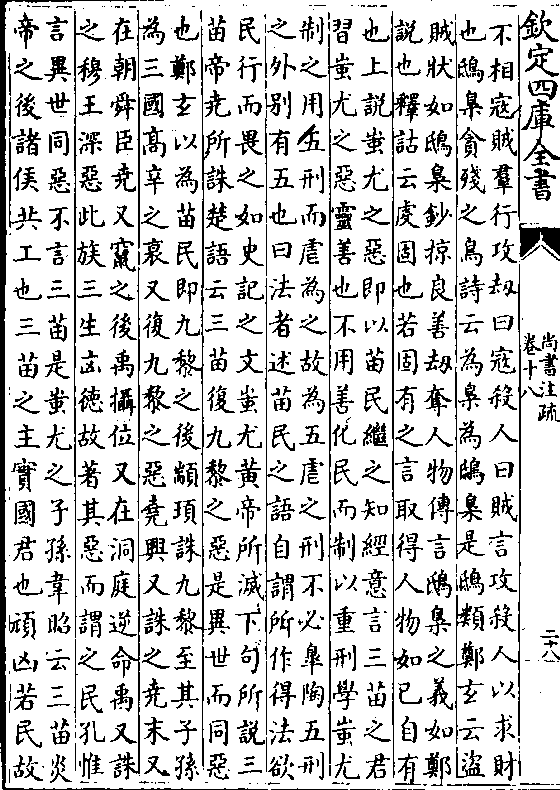 欽定四庫全書
尚書注疏
卷十八
二十八
不相寇賊羣行攻刼曰寇殺人曰賊言攻殺人以求財
也鴟梟貪殘之鳥詩云為梟為鴟梟是鴟類鄭玄云盜
賊狀如鴟梟鈔掠良善刼奪人物傳言鴟梟之義如鄭
說也釋詁云虔固也若固有之言取得人物如已自有
也上說蚩尤之惡即以苗民繼之知經意言三苗之君
習蚩尤之惡靈善也不用善化民而制以重刑學蚩尤
制之用五刑而虐為之故為五虐之刑不必臯陶五刑
之外別有五也曰法者述苗民之語自謂所作得法欲
民行而畏之如史記之文蚩尤黄帝所滅下句所說三
苗帝堯所誅楚語云三苗復九黎之惡是異世而同惡
也鄭玄以為苗民即九黎之後顓頊誅九黎至其子孫
為三國高辛之衰又復九黎之惡堯興又誅之堯末又
在朝舜臣堯又竄之後禹攝位又在洞庭逆命禹又誅
之穆王深惡此族三生凶德故著其惡而謂之民孔惟
言異世同惡不言三苗是蚩尤之子孫韋昭云三苗炎
帝之後諸侯共工也三苗之主實國君也頑凶若民故